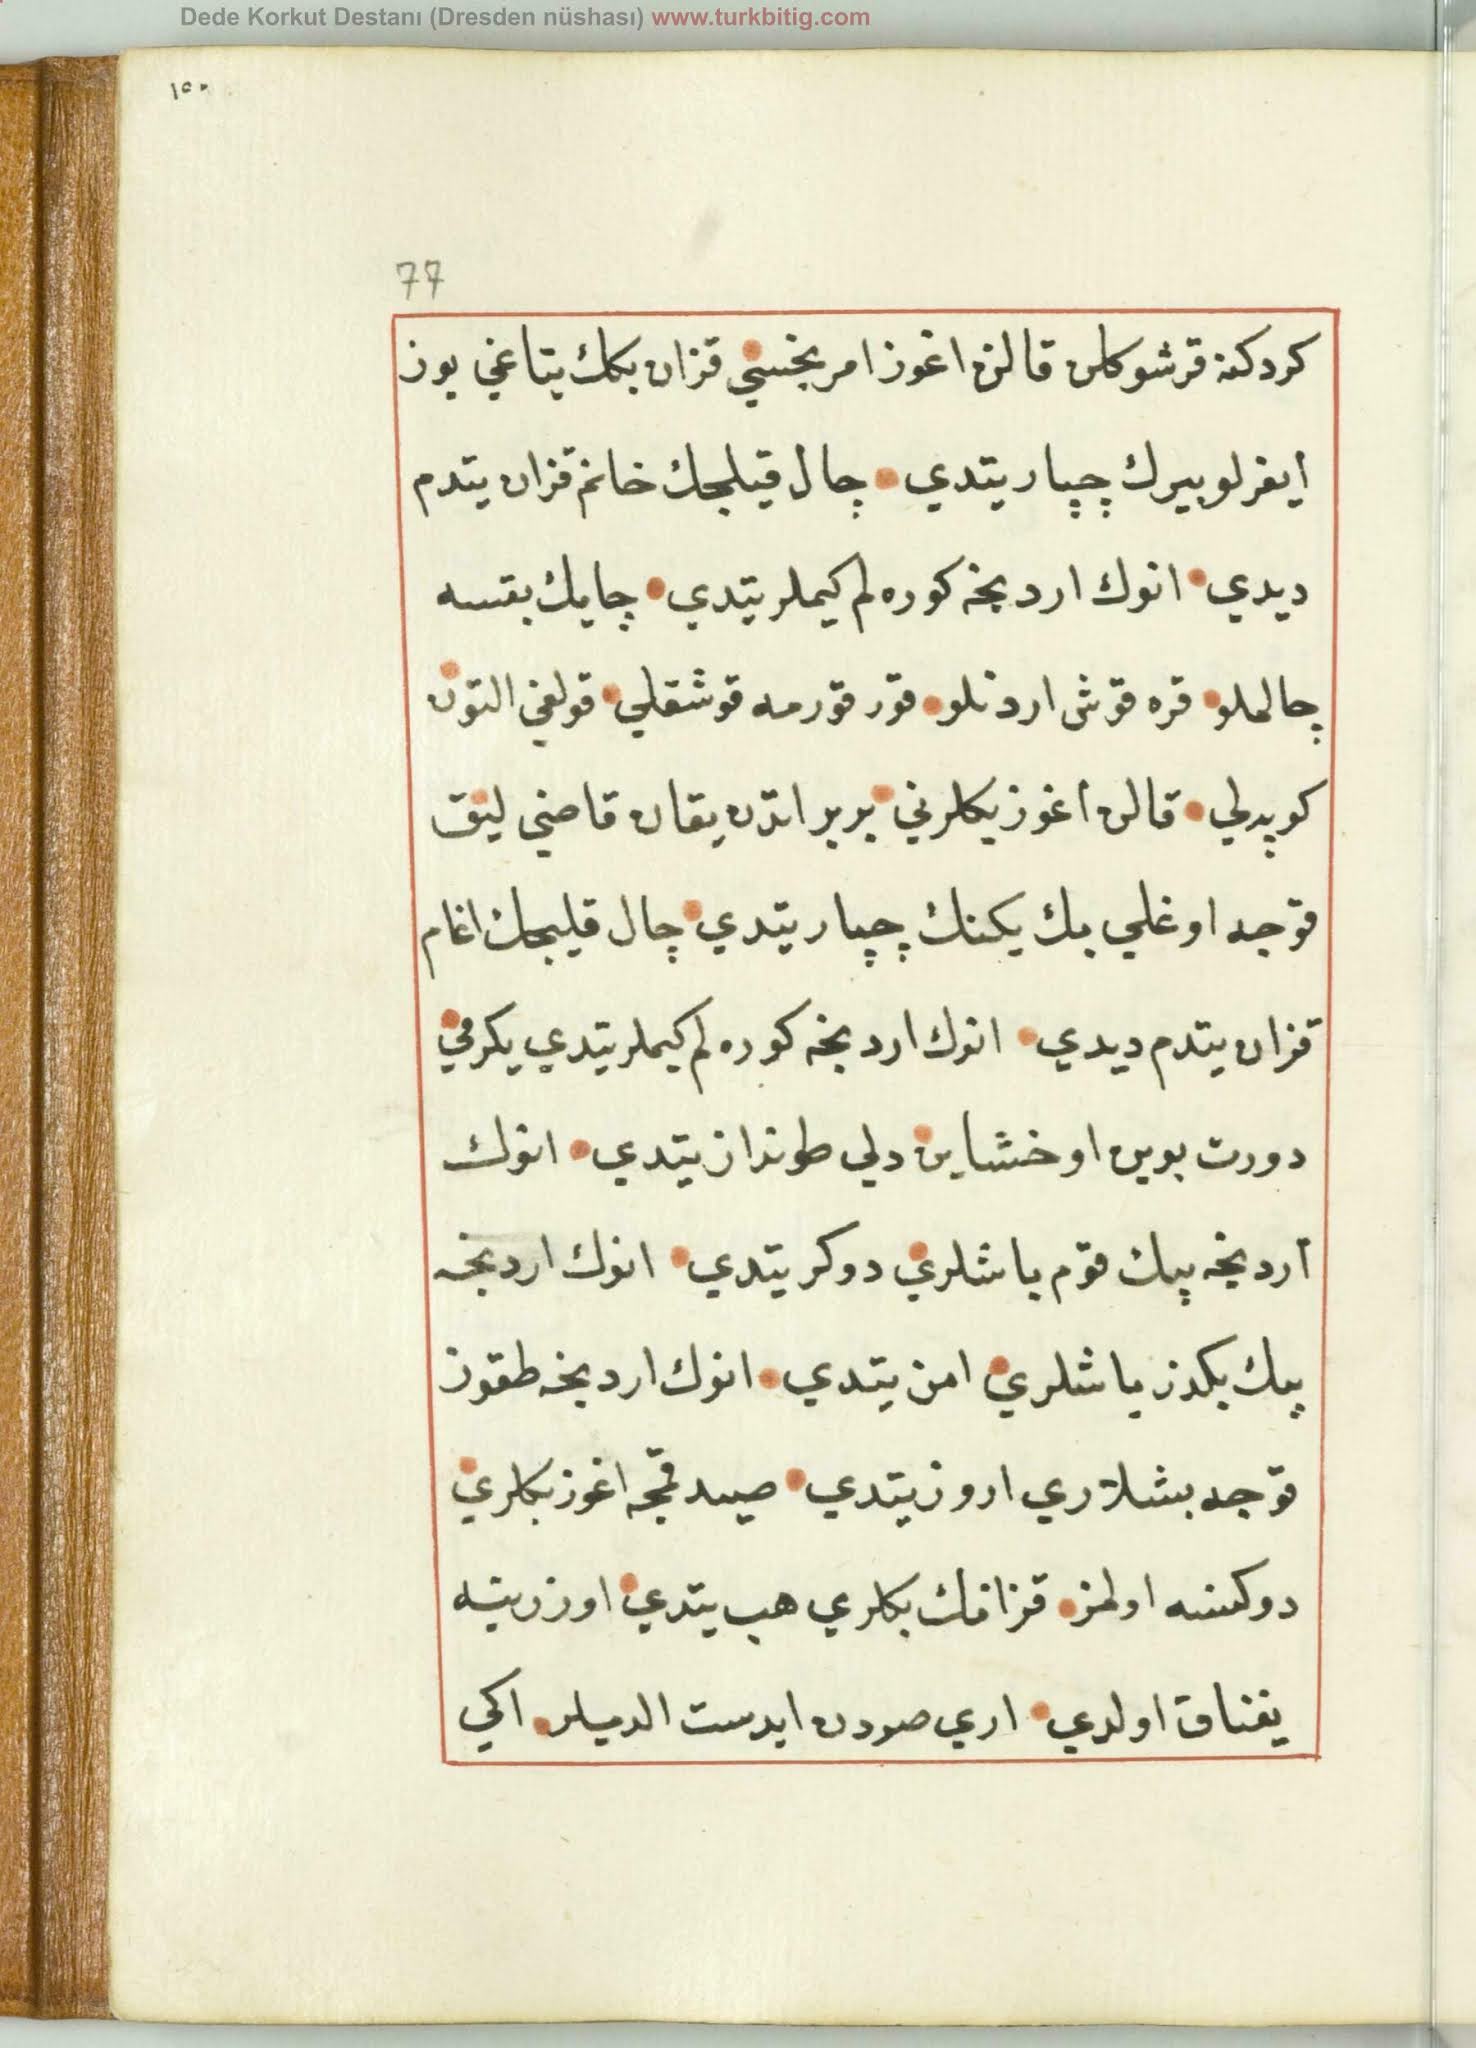 Dede Korkut Destanı (Dresden nüshası) www.turkbitig.com
١٥٠
77
كردكنه قرشو كلن قالن اغوز امر يخسي قزان بكك يتاغي بوز
ايغرلو بيرك چپار يتدي چال قيلجك خانم قزان يتدم
ديدي انوك اردبخه كوره لم كيملر يتدي چايك بقسه
چالملو قره قوش اردنلو قور قورمه قوشقلي قولغي التون
كوپدلي قالن اغوز بكلرني بربر اتدن يقان قاضي ليق
قوجه اوغلي بك يكنك چپار يتدي چال قليجك اغام
قزان يتدم ديدي انوك اردبخه كوره لم كيملر يتدي يكرمي
دورت بوين اوخشاين دلي طوندار يتدي انوك
اردبخه بيك قوم باشلري دوكر يتدي انوك اردبخه
بيك بكدز باشلري امن يتدي انوك اردبخه طقوز
قوجه بشلاري اروز يتدي صيدقجه اغوز بكلري
دوكنسه اولمز قزانك بكلري هب يتدي اوزرينه
يغناق اولدي اري صودن ابدست الديلر اكي